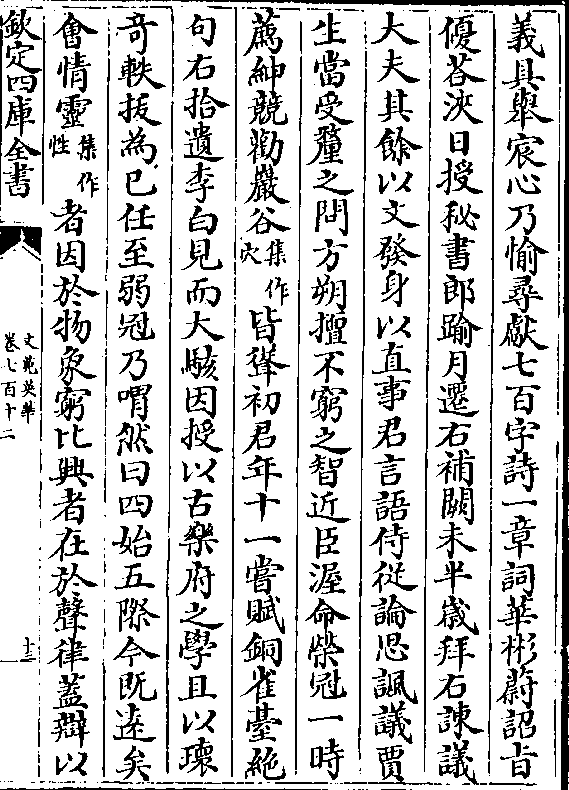 義具舉宸心乃愉尋獻七百字詩一章詞華彬蔚詔旨
優荅浹日授秘書郎踰月遷右補闕未半歲拜右諫議
大夫其餘以文發身以直事君言語侍從論思諷議賈
生當受釐之問方朔擅不窮之智近臣渥命榮冠一時
薦紳競勸巖谷集作穴皆聳初君年十一嘗賦銅雀臺絶
句右拾遺李白見而大駭因授以古樂府之學且以瓌
竒軼拔為已任至弱冠乃喟然曰四始五際今既逺矣
會情靈集作性者因於物象窮比興者在於聲律葢辯以
欽定四庫全書
文苑英華
卷七百十二
十三